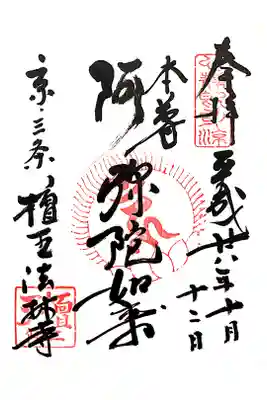 奉拝 平成廿六年十月十二日
本尊
阿弥陀如来
京・三条 檀王法林寺